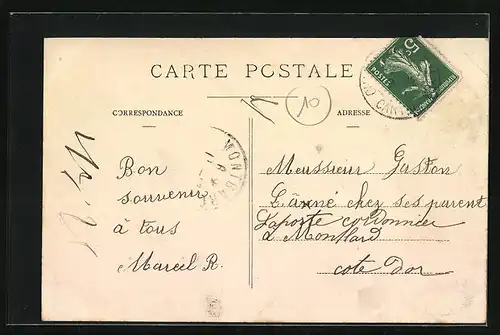 CARTE POSTALE
10
CORRESPONDANCE
ADRESSE
5
POSTES
MONTBARD
Bon
souvenir
à tous
Marcel R.
Meussieur Gaston
L'âxné chez ses parent
Laporte cordonnier
a Montbard
cote dor